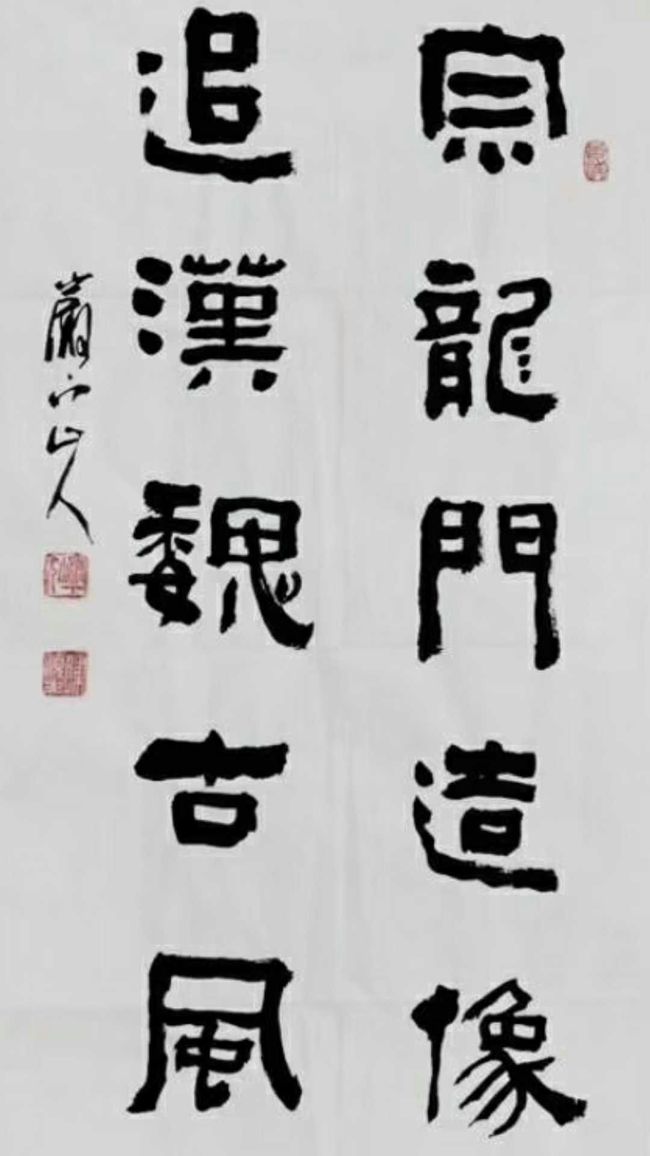 宗龍門造像
追漢魏古風
山人